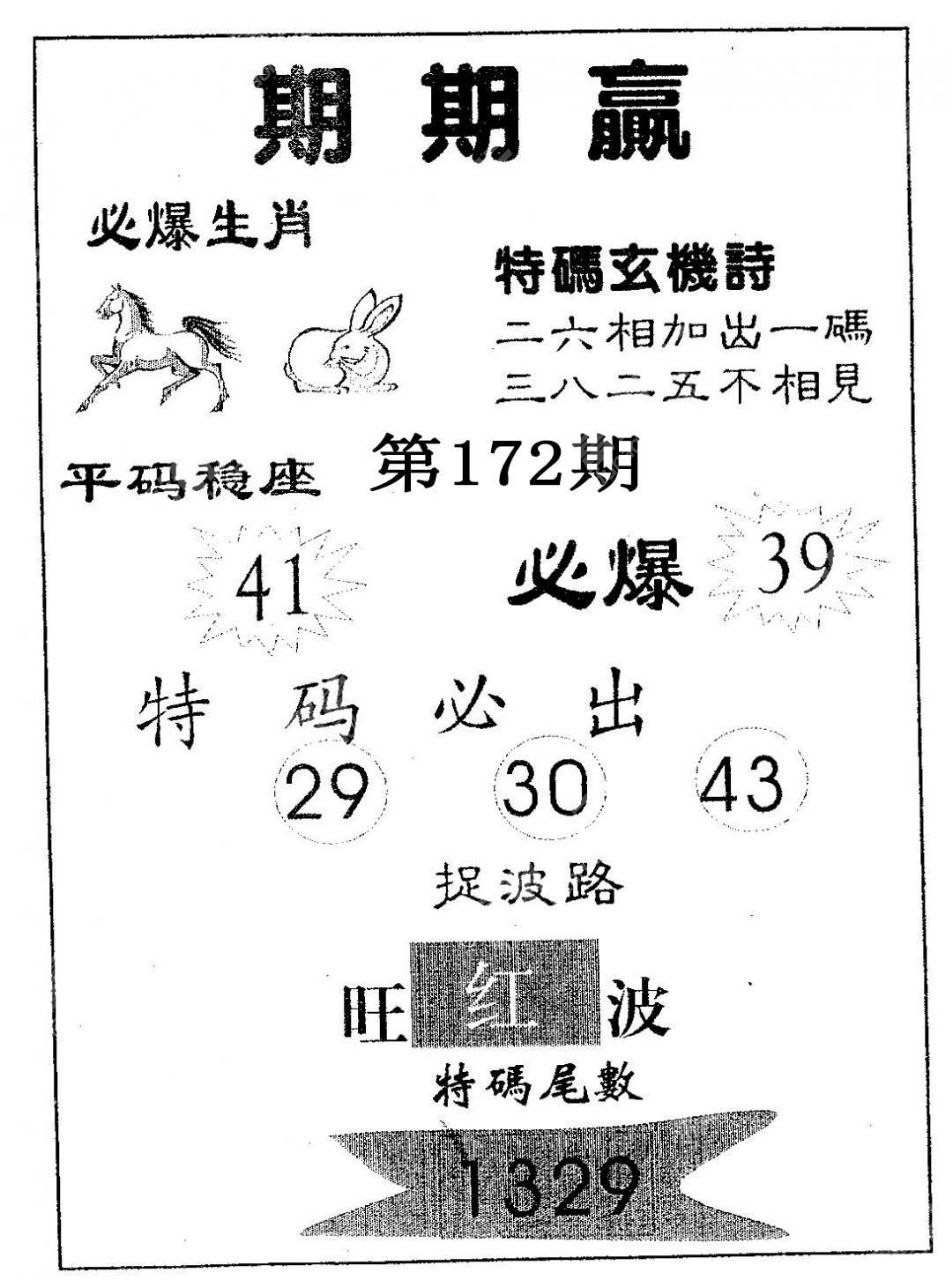 期期贏
必爆生肖
特碼玄機詩
二六相加出一碼
三八二五不相見
平码稳座
第172期
41
必爆 39
特码必出
29 30 43
捉波路
旺红波
特碼尾數
1329